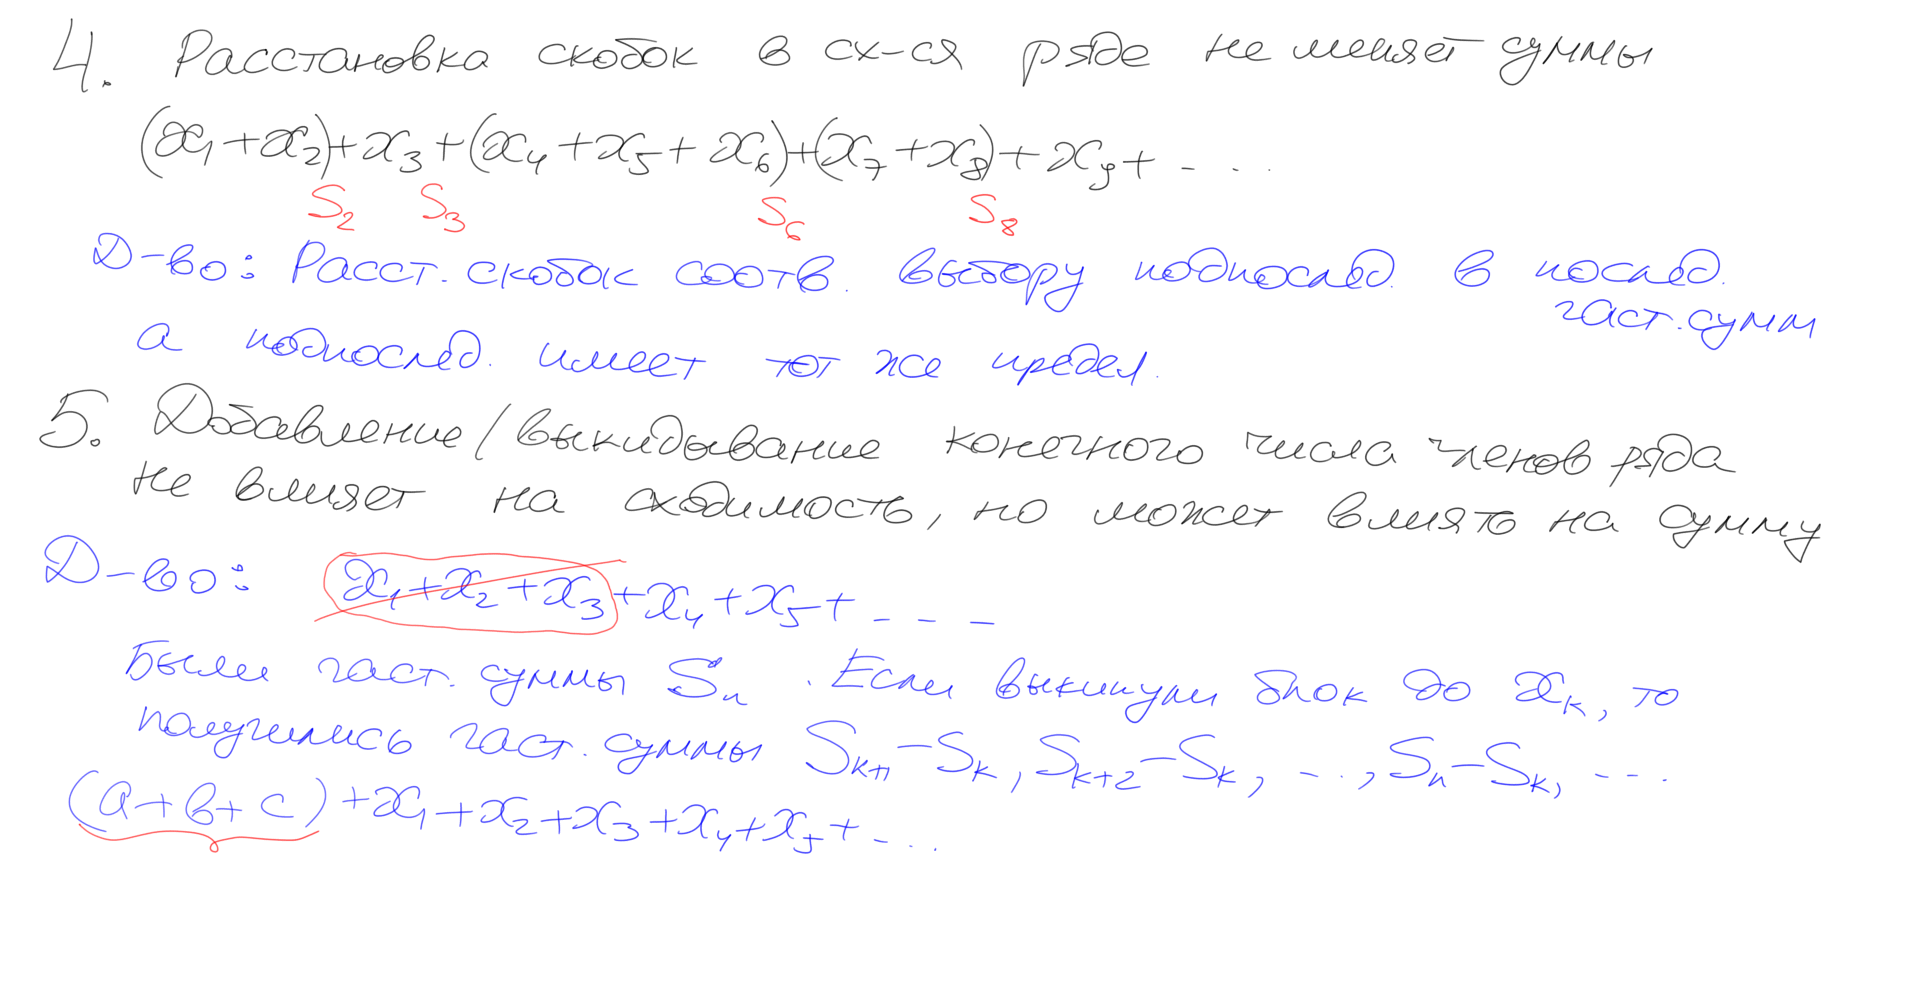 4. Расстановка скобок в сх-ся ряде не меняет суммы
(x₁+x₂)+x₃+(x₄+x₅+x₆)+(x₇+x₈)+x₉+ - . . .
S₂ S₃ S₆ S₈
Д-во: Расст. скобок соотв. выбору подпослед. в послед.
част. сумм
а подпослед. имеет тот же предел.
5. Добавление/выкидывание конечного числа членов ряда
не влияет на сходимость, но может влиять на сумму
Д-во: x₁+x₂+x₃+x₄+x₅+ - - -
Были част. суммы Sₙ. Если выкинули блок до xₖ, то
получились част. суммы Sₖ₊₁-Sₖ, Sₖ₊₂-Sₖ, - . ., Sₙ-Sₖ, - - -
(a+b+c)+x₁+x₂+x₃+x₄+x₅+ - . . .